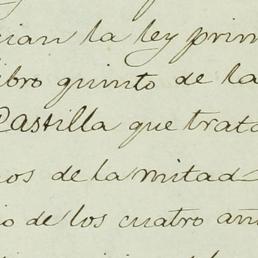 cian la ley prim
ibro quinto de la
Castilla que trata
nos de la mitad
io de los cuatro añ